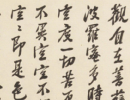 觀自在菩薩
波羅蜜多時
空度一切苦
不異空空不
空々即是色